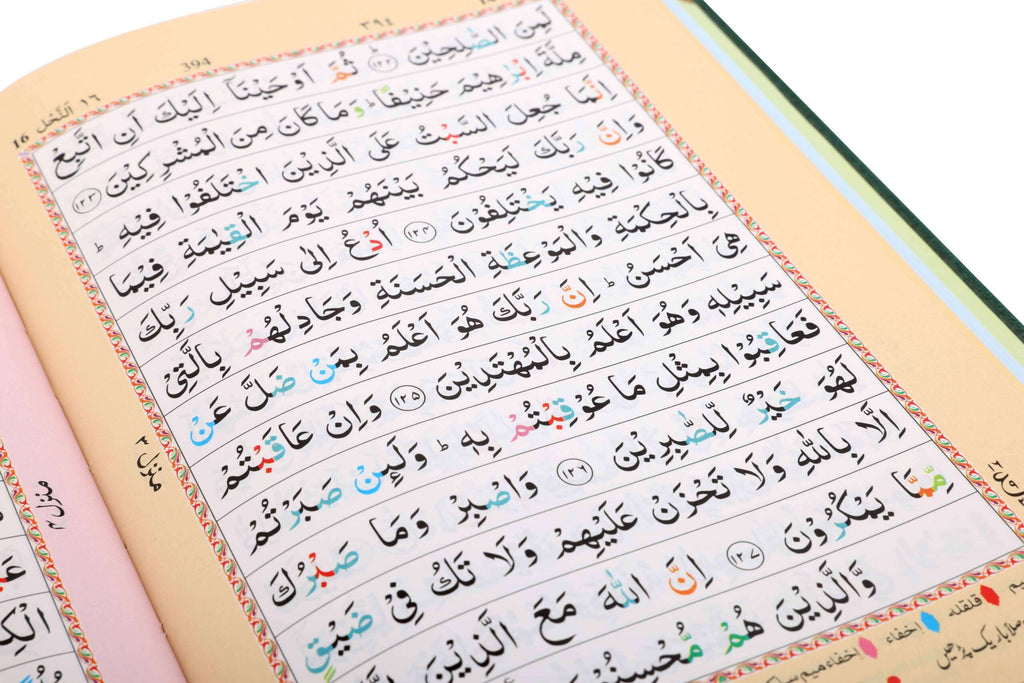 ٣٩٤
394
16 اَلنَّحْل ١٦
لَمِنَ الصّٰلِحِيْنَ ﴿۱۲۲﴾ ثُمَّ اَوْحَيْنَاۤ اِلَيْكَ اَنِ اتَّبِعْ
مِلَّةَ اِبْرٰهِيْمَ حَنِيْفًا ؕ وَمَا كَانَ مِنَ الْمُشْرِكِيْنَ ﴿۱۲۳﴾
اِنَّمَا جُعِلَ السَّبْتُ عَلَى الَّذِيْنَ اخْتَلَفُوْا فِيْهِ ؕ
وَاِنَّ رَبَّكَ لَيَحْكُمُ بَيْنَهُمْ يَوْمَ الْقِيٰمَةِ فِيْمَا
كَانُوْا فِيْهِ يَخْتَلِفُوْنَ ﴿۱۲۴﴾ اُدْعُ اِلٰى سَبِيْلِ رَبِّكَ
بِالْحِكْمَةِ وَالْمَوْعِظَةِ الْحَسَنَةِ وَجَادِلْهُمْ بِالَّتِيْ
هِيَ اَحْسَنُ ؕ اِنَّ رَبَّكَ هُوَ اَعْلَمُ بِمَنْ ضَلَّ عَنْ
سَبِيْلِهٖ وَهُوَ اَعْلَمُ بِالْمُهْتَدِيْنَ ﴿۱۲۵﴾ وَاِنْ عَاقَبْتُمْ
فَعَاقِبُوْا بِمِثْلِ مَا عُوْقِبْتُمْ بِهٖ ؕ وَلَئِنْ صَبَرْتُمْ
لَهُوَ خَيْرٌ لِّلصّٰبِرِيْنَ ﴿۱۲۶﴾ وَاصْبِرْ وَمَا صَبْرُكَ
اِلَّا بِاللّٰهِ وَلَا تَحْزَنْ عَلَيْهِمْ وَلَا تَكُ فِيْ ضَيْقٍ
مِّمَّا يَمْكُرُوْنَ ﴿۱۲۷﴾ اِنَّ اللّٰهَ مَعَ الَّذِيْنَ
وَّالَّذِيْنَ هُمْ مُّحْسِنُوْ
منزل ٣
منزل ٣
الْكِ
قلقلہ
اِخفاء
اِخفاء میم